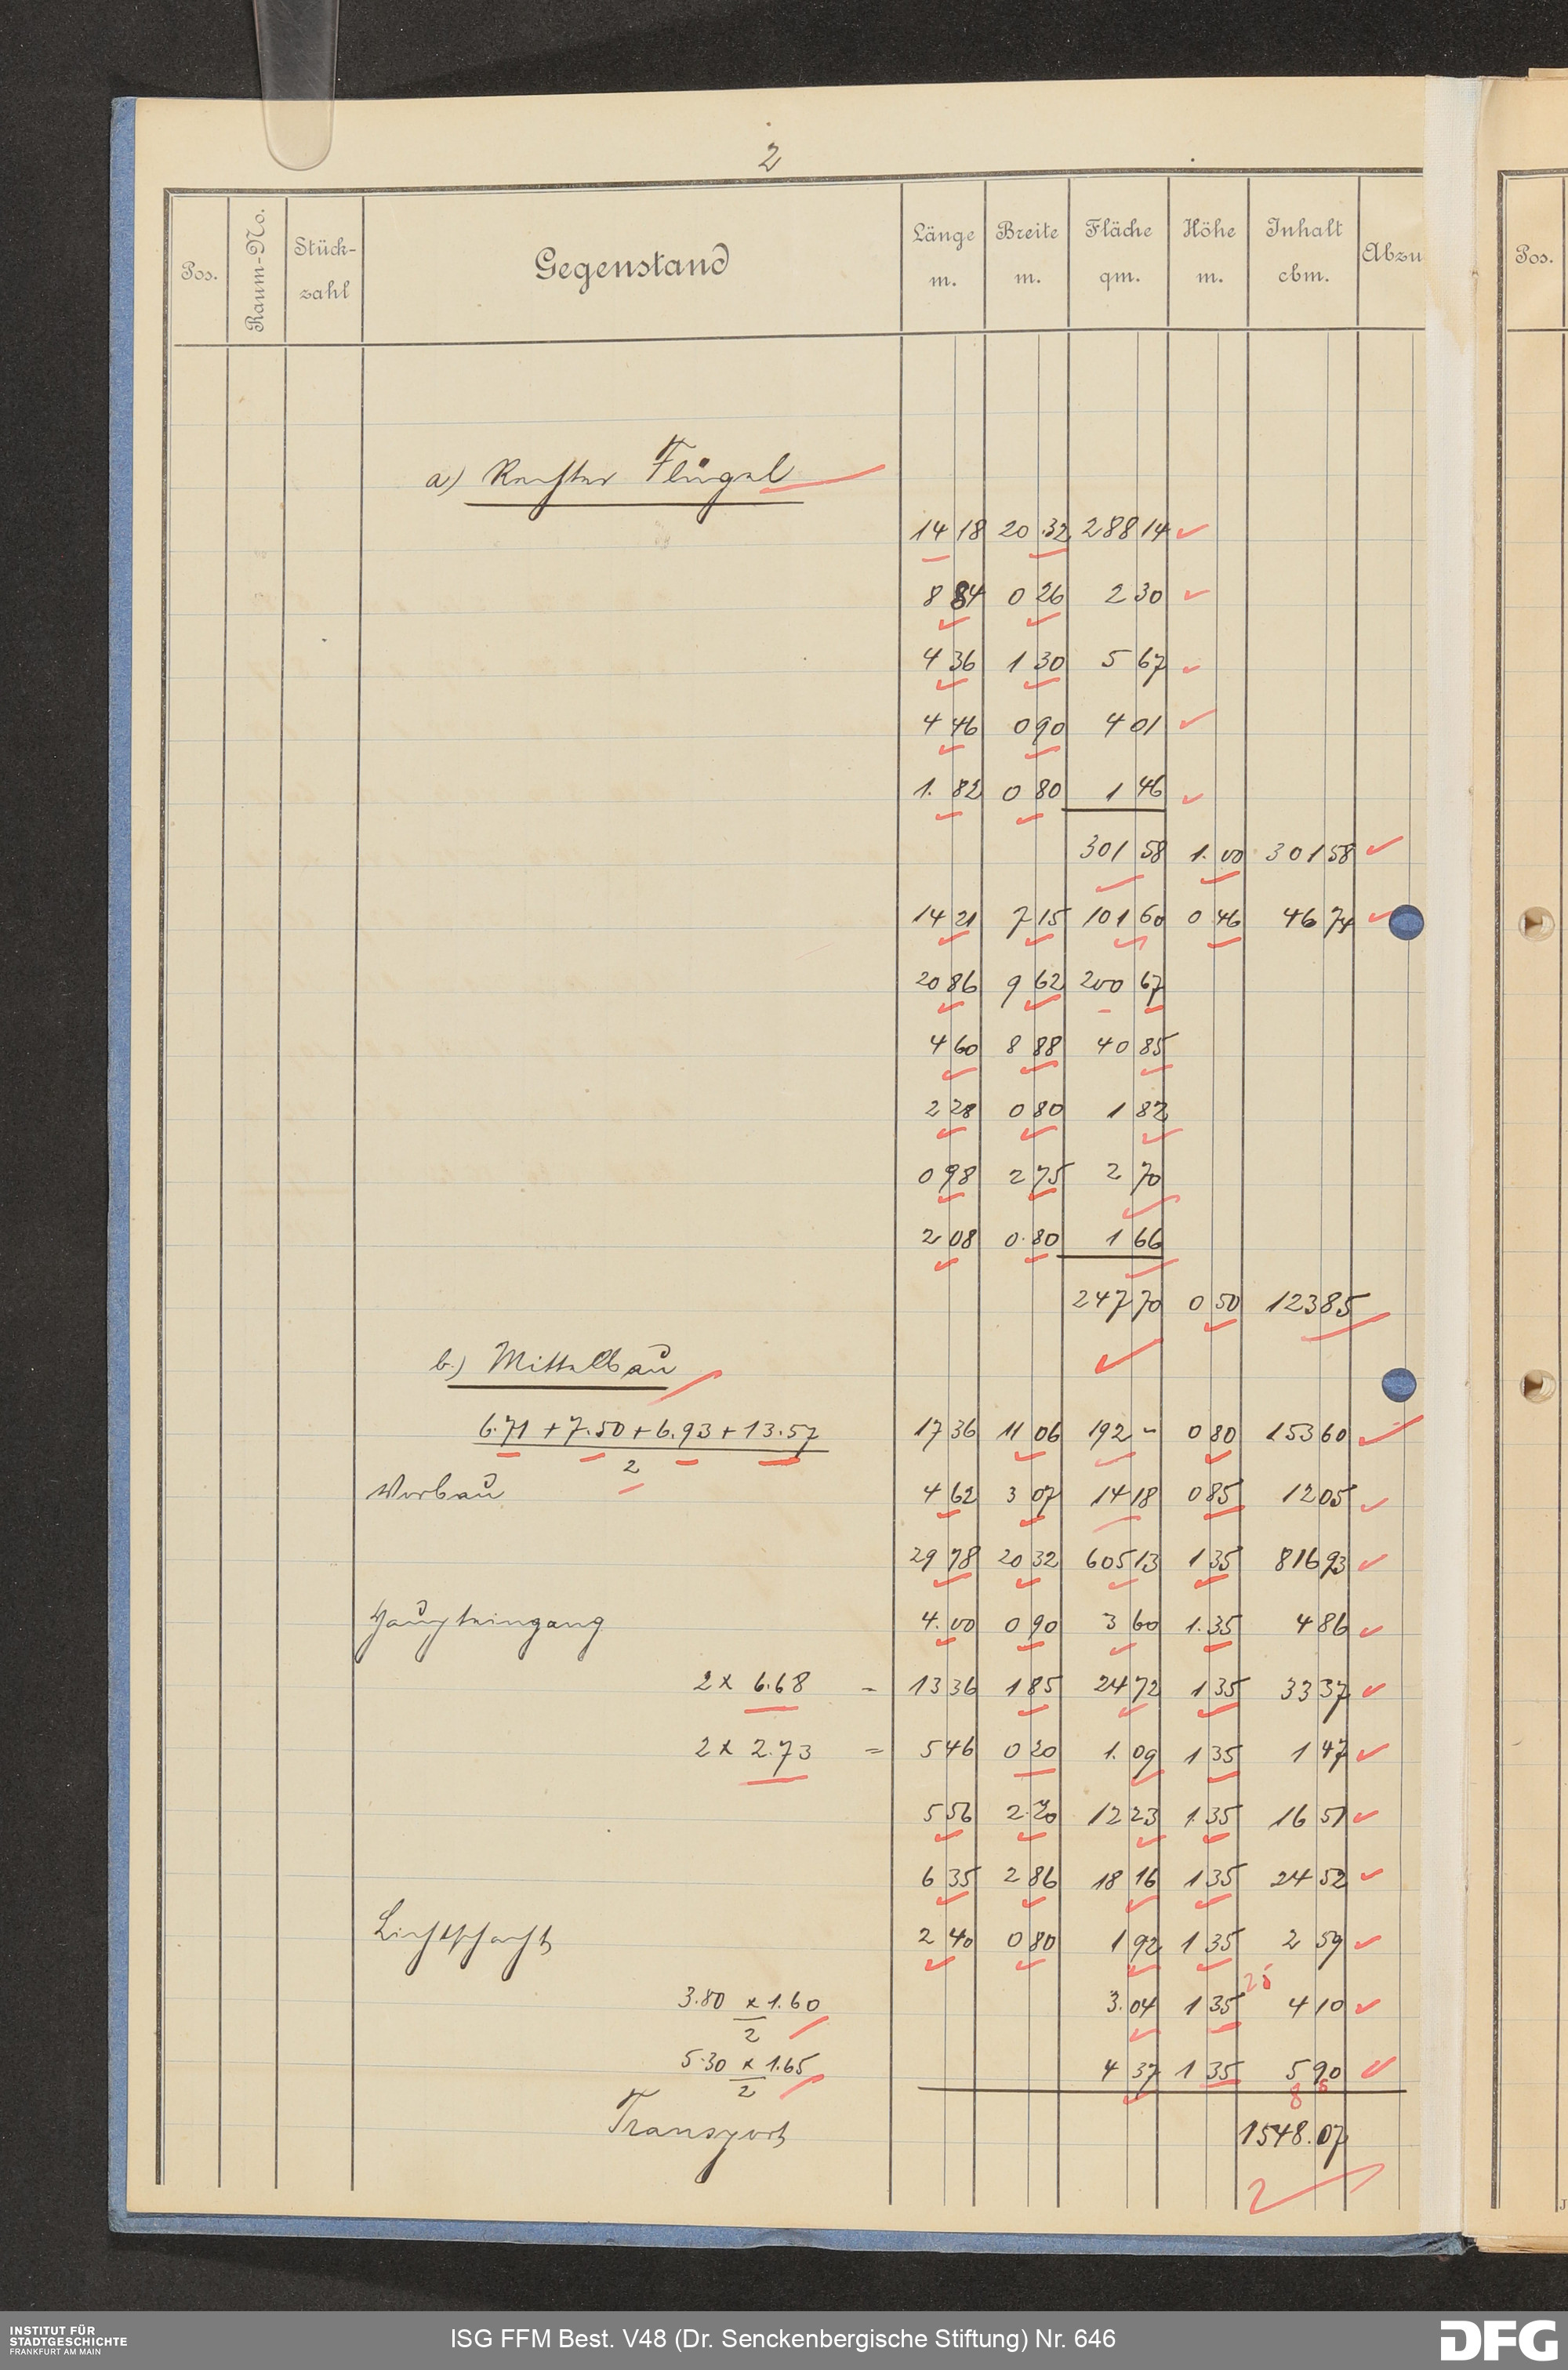 2
Pos. Raum-No. Stück-zahl Gegenstand Länge m. Breite m. Fläche qm. Höhe m. Inhalt cbm. Abzu Pos.
a) Rechter Flügel
14 18 20 32 288 14
8 84 0 26 2 30
4 36 1 30 5 67
4 46 0 90 4 01
1. 82 0 80 1 46
301 58 1. 00 301 58
14 21 7 15 101 60 0 46 46 74
20 86 9 62 200 67
4 60 8 88 40 85
2 28 0 80 1 82
0 98 2 75 2 70
2 08 0. 80 1 66
247 70 0 50 123 85
b.) Mittelbau
6.71 + 7.50 + 6.93 + 13.57 17 36 11 06 192 - 0 80 153 60
2
Vorbau 4 62 3 07 14 18 0 85 12 05
29 78 20 32 605 13 1 35 816 93
Haupteingang 4. 00 0 90 3 60 1. 35 4 86
2 x 6.68 = 13 36 1 85 24 72 1 35 33 37
2 x 2.73 = 5 46 0 20 1. 09 1 35 1 47
5 56 2. 20 12 23 1. 35 16 51
6 35 2 86 18 16 1 35 24 52
Lichtschacht 2 40 0 80 1 92 1 35 2 59
3.80 x 1.60 3. 04 1 35 4 10
2
5.30 x 1.65 4 37 1 35 5 90
2
8 5
Transport 1548.07
INSTITUT FÜR
STADTGESCHICHTE
FRANKFURT AM MAIN
ISG FFM Best. V48 (Dr. Senckenbergische Stiftung) Nr. 646
DFG